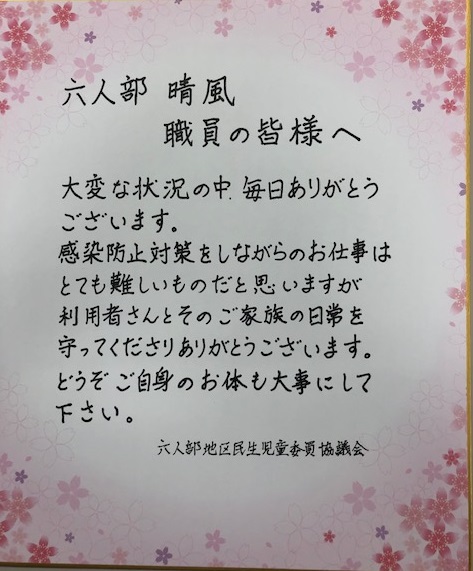 六人部 晴風
職員の皆様へ
大変な状況の中、毎日ありがとう
ございます。
感染防止対策をしながらのお仕事は
とても難しいものだと思いますが
利用者さんとそのご家族の日常を
守ってくださりありがとうございます。
どうぞご自身のお体も大事にして
下さい。
六人部地区民生児童委員協議会